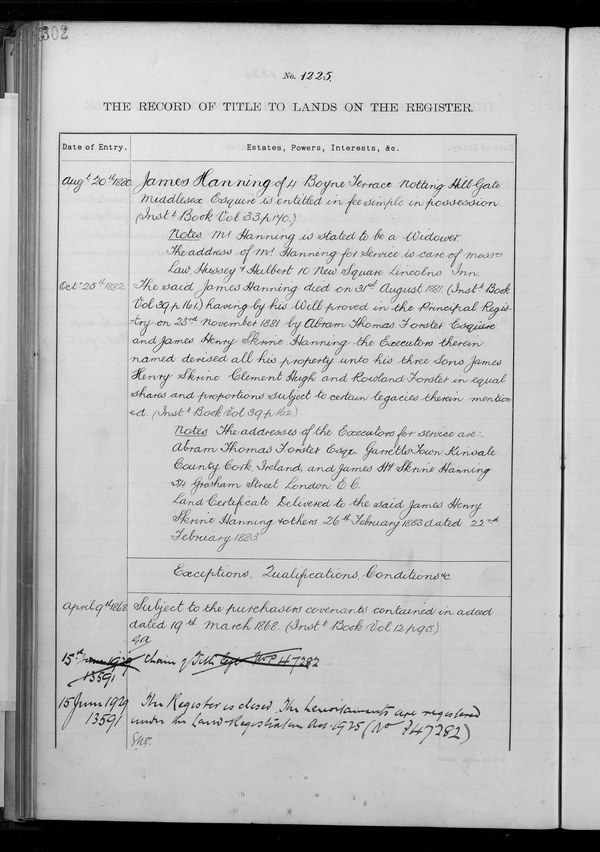 302
No. 1225.
THE RECORD OF TITLE TO LANDS ON THE REGISTER.
Date of Entry.
Estates, Powers, Interests, &c.
Augt 20th 1880
James Hanning of 4 Boyne Terrace Notting Hill Gate
Middlesex Esquire is entitled in fee simple in possession.
(Inst t Book Vol 33 p 170.)
Notes Mr Hanning is stated to be a Widower.
The address of Mr Hanning for service is care of Messrs
Law, Hussey & Hulbert 10 New Square Lincolns Inn.
Octr 25th 1882
The said James Hanning died on 31st August 1881. (Inst t Book
Vol 39 p 161.) having by his Will proved in the Principal Regis-
try on 23rd November 1881 by Abram Thomas Forster Esquire
and James Henry Skrine Hanning the Executors therein
named devised all his property unto his three Sons James
Henry Skrine Clement Hugh and Rowland Forster in equal
shares and proportions subject to certain legacies therein mention-
ed. (Inst t Book Vol 39 p 162)
Notes The addresses of the Executors for service are:-
Abram Thomas Forster Esqre Garretts Town Kinsale
County Cork, Ireland, and James Hy Skrine Hanning
Gresham Street London E.C.
Land Certificate Delivered to the said James Henry
Skrine Hanning & others 26th February 1883 dated 22nd
February 1883
Exceptions, Qualifications, Conditions &c.
April 9th 1868
Subject to the purchasers covenants contained in a deed
dated 19th March 1868. (Inst t Book Vol 12 p 98)
15th June 1929
Chain of Title No P 47282
13591
15 June 1929
The Register is closed. The hereditaments are registered
13591
under the Land Registration Act. 1925 (No P 47282)